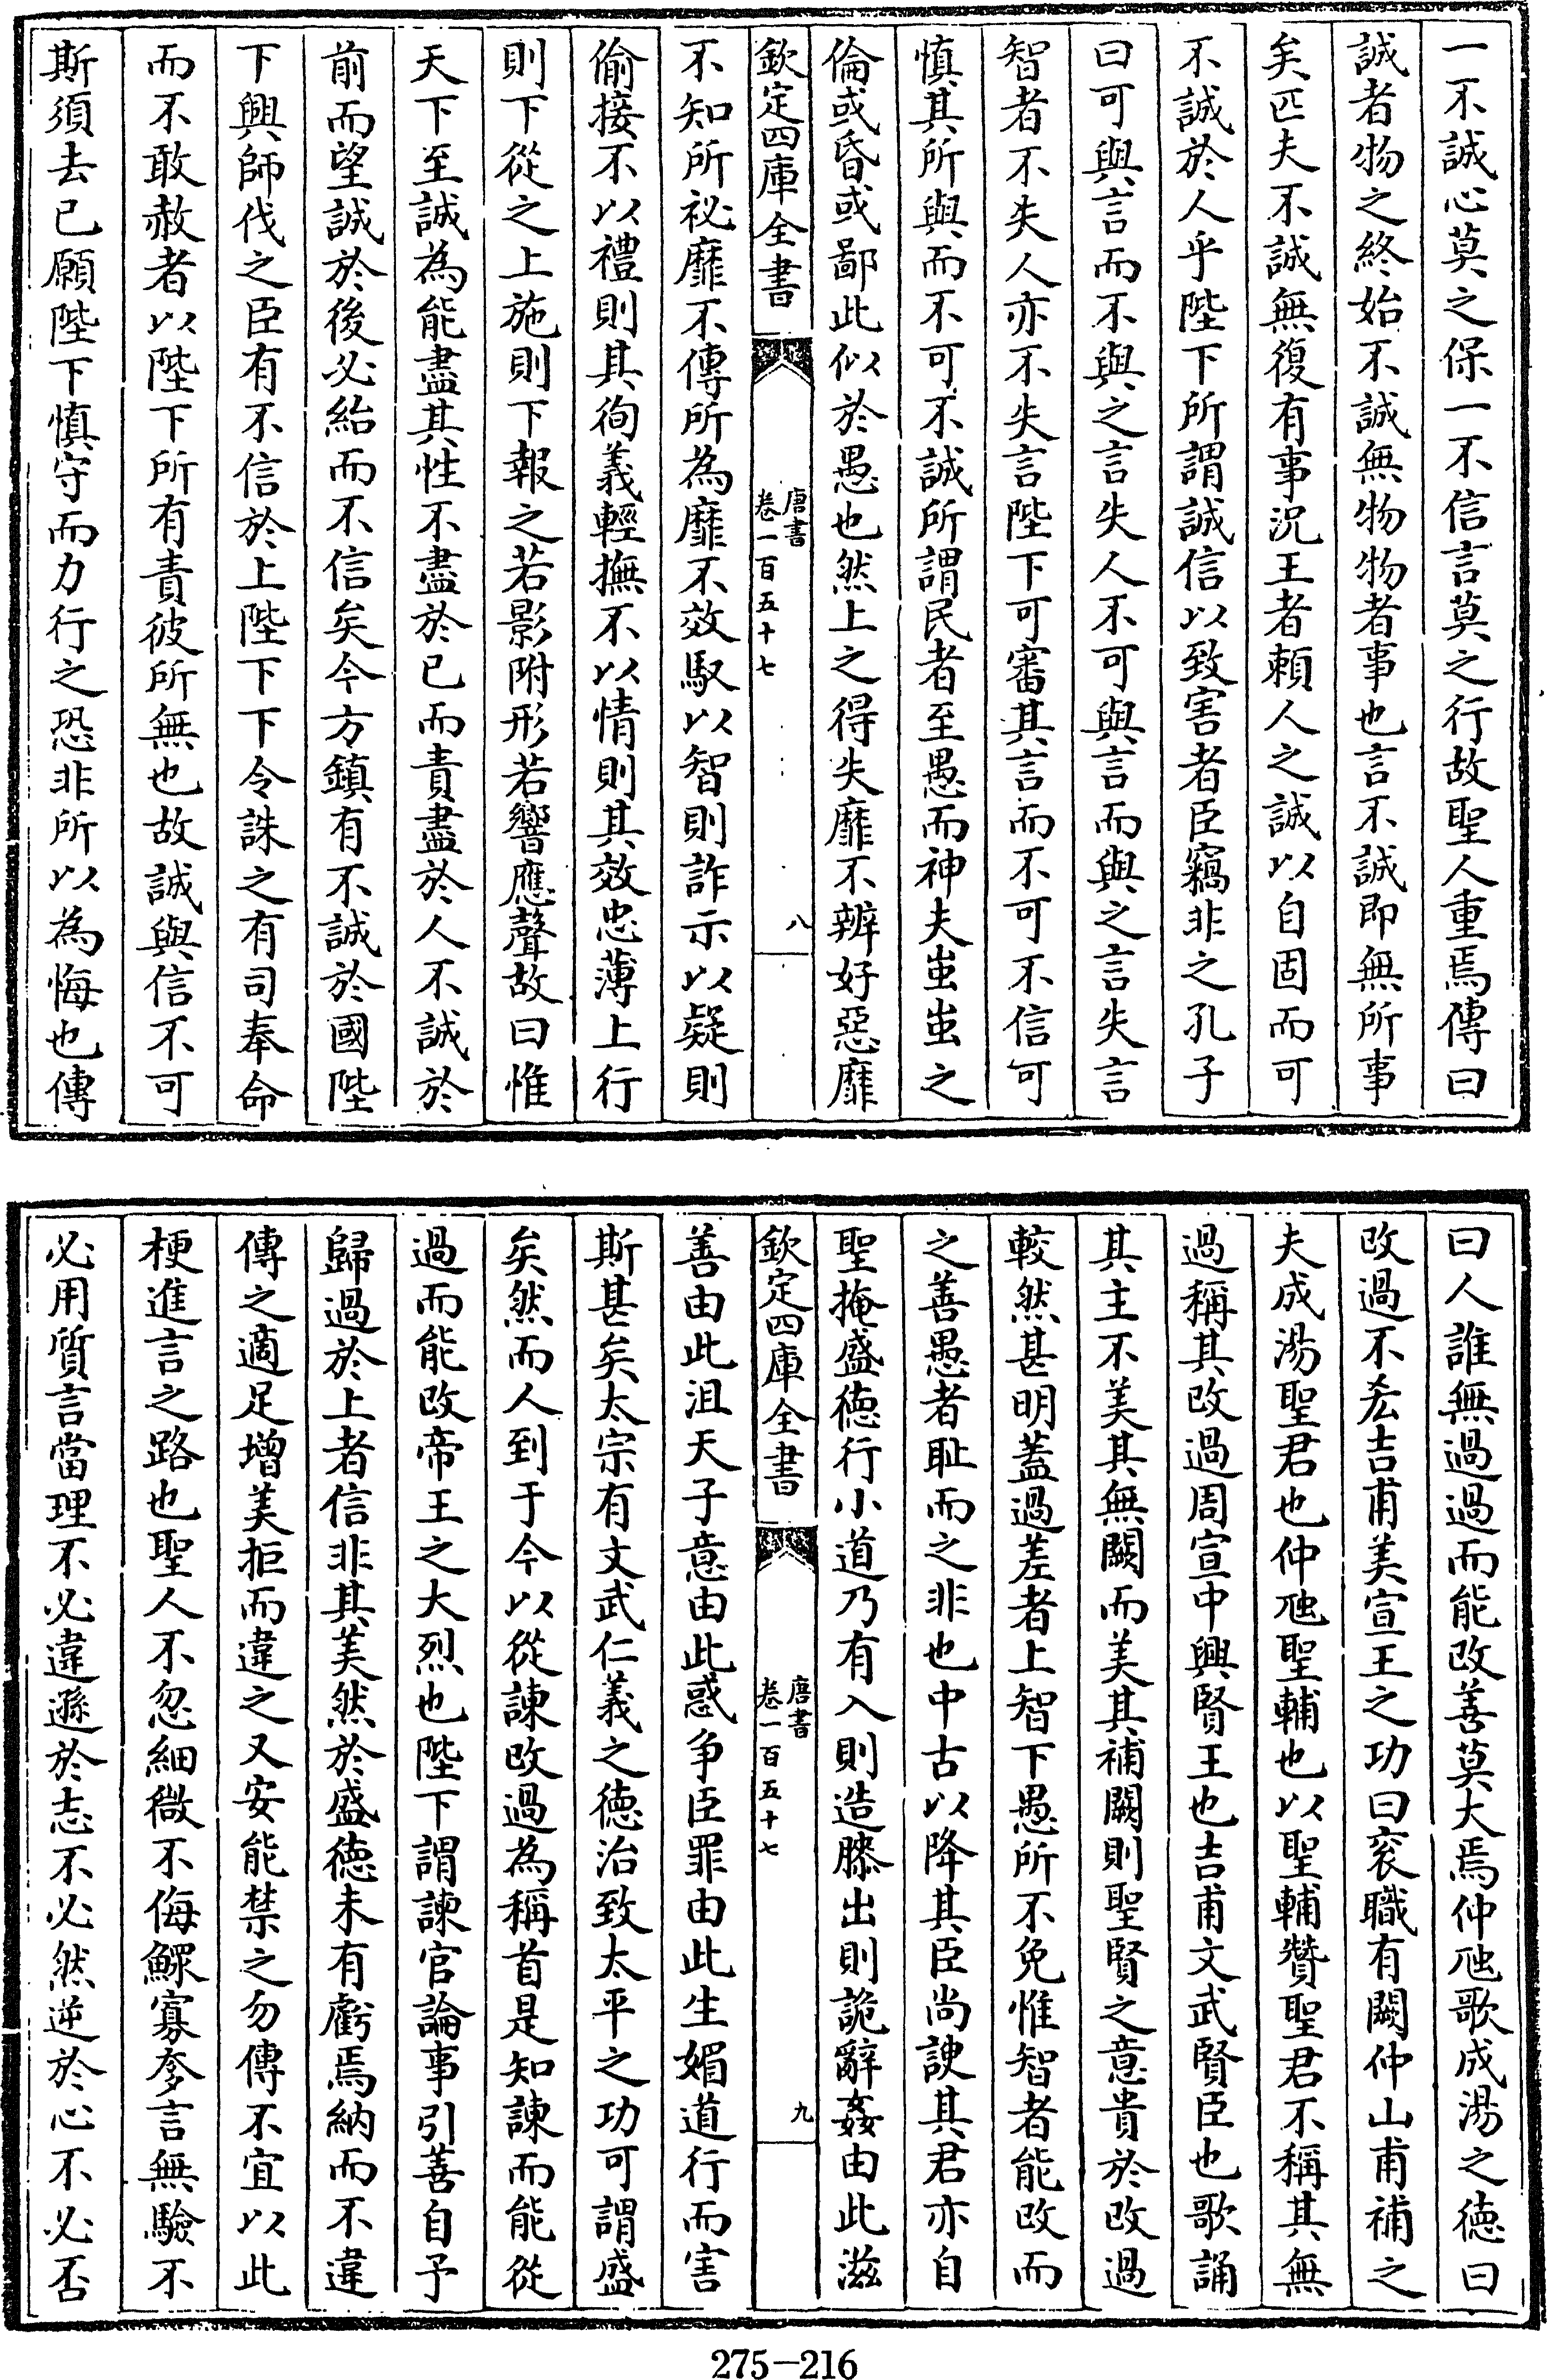 一不誠心莫之保一不信言莫之行故聖人重焉傳曰
誠者物之終始不誠無物物者事也言不誠即無所事
矣匹夫不誠無復有事況王者賴人之誠以自固而可
不誠於人乎陛下所謂誠信以致害者臣竊非之孔子
曰可與言而不與之言失人不可與言而與之言失言
智者不失人亦不失言陛下可審其言而不可不信可
慎其所與而不可不誠所謂民者至愚而神夫蚩蚩之
倫或昏或鄙此似於愚也然上之得失靡不辨好惡靡
欽定四庫全書
唐書
卷一百五十七
八
不知所祕靡不傳所為靡不效馭以智則詐示以疑則
偷接不以禮則其徇義輕撫不以情則其效忠薄上行
則下從之上施則下報之若影附形若響應聲故曰惟
天下至誠為能盡其性不盡於已而責盡於人不誠於
前而望誠於後必紿而不信矣今方鎮有不誠於國陛
下興師伐之臣有不信於上陛下下令誅之有司奉命
而不敢赦者以陛下所有責彼所無也故誠與信不可
斯須去已願陛下慎守而力行之恐非所以為悔也傳
曰人誰無過過而能改善莫大焉仲虺歌成湯之德曰
改過不吝吉甫美宣王之功曰袞職有闕仲山甫補之
夫成湯聖君也仲虺聖輔也以聖輔贊聖君不稱其無
過稱其改過周宣中興賢王也吉甫文武賢臣也歌誦
其主不美其無闕而美其補闕則聖賢之意貴於改過
較然甚明蓋過差者上智下愚所不免惟智者能改而
之善愚者耻而之非也中古以降其臣尚諛其君亦自
聖掩盛德行小道乃有入則造膝出則詭辭姦由此滋
欽定四庫全書
唐書
卷一百五十七
九
善由此沮天子意由此惑爭臣罪由此生媚道行而害
斯甚矣太宗有文武仁義之德治致太平之功可謂盛
矣然而人到于今以從諫改過為稱首是知諫而能從
過而能改帝王之大烈也陛下謂諫官論事引善自予
歸過於上者信非其美然於盛德未有虧焉納而不違
傳之適足增美拒而違之又安能禁之勿傳不宜以此
梗進言之路也聖人不忽細微不侮鰥寡奓言無驗不
必用質言當理不必違遜於志不必然逆於心不必否
275-216